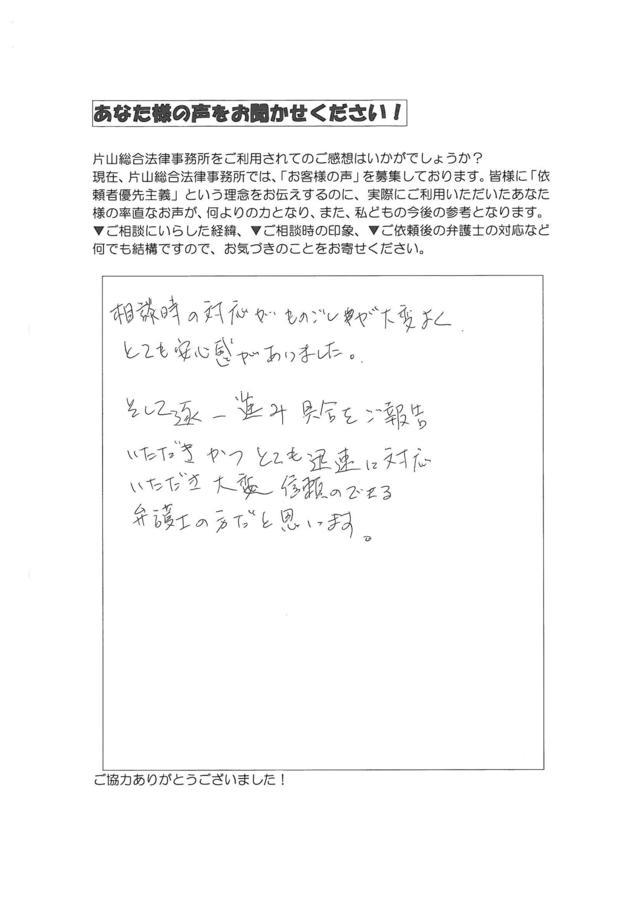 あなた様の声をお聞かせください！
片山総合法律事務所をご利用されてのご感想はいかがでしょうか？
現在、片山総合法律事務所では、「お客様の声」を募集しております。皆様に「依
頼者優先主義」という理念をお伝えするのに、実際にご利用いただいたあなた
様の率直なお声が、何よりの力となり、また、私どもの今後の参考となります。
▼ご相談にいらした経緯、▼ご相談時の印象、▼ご依頼後の弁護士の対応など
何でも結構ですので、お気づきのことをお寄せください。
相談時の対応がものごしやが大変よく
とても安心感がありました。
そして逐一進み具合をご報告
いただきかつとても迅速に対応
いただき大変信頼のできる
弁護士の方だと思います。
ご協力ありがとうございました！